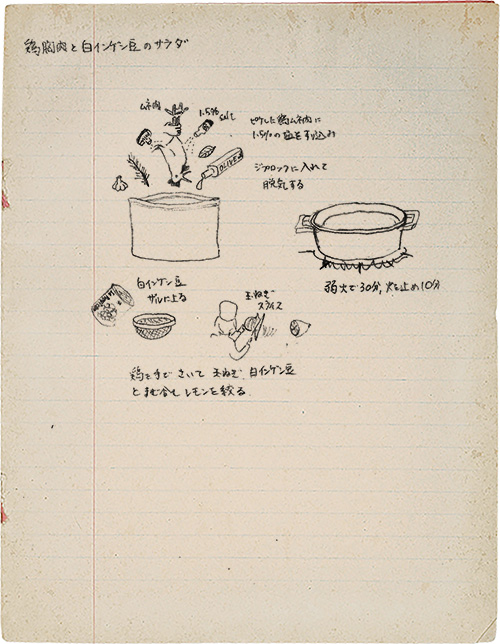 鶏胸肉と白インゲン豆のサラダ
ムネ肉
1.5% salt
ピケした鶏ムネ肉に
1.5%の塩をすり込み
OLIVE
ジプロックに入れて
脱気する
弱火で30分,火を止め10分
白インゲン豆
ザルに上る
玉ねぎ
スライス
鶏を手でさいて 玉ねぎ, 白インゲン豆
とまぜ合せ レモンを絞る.